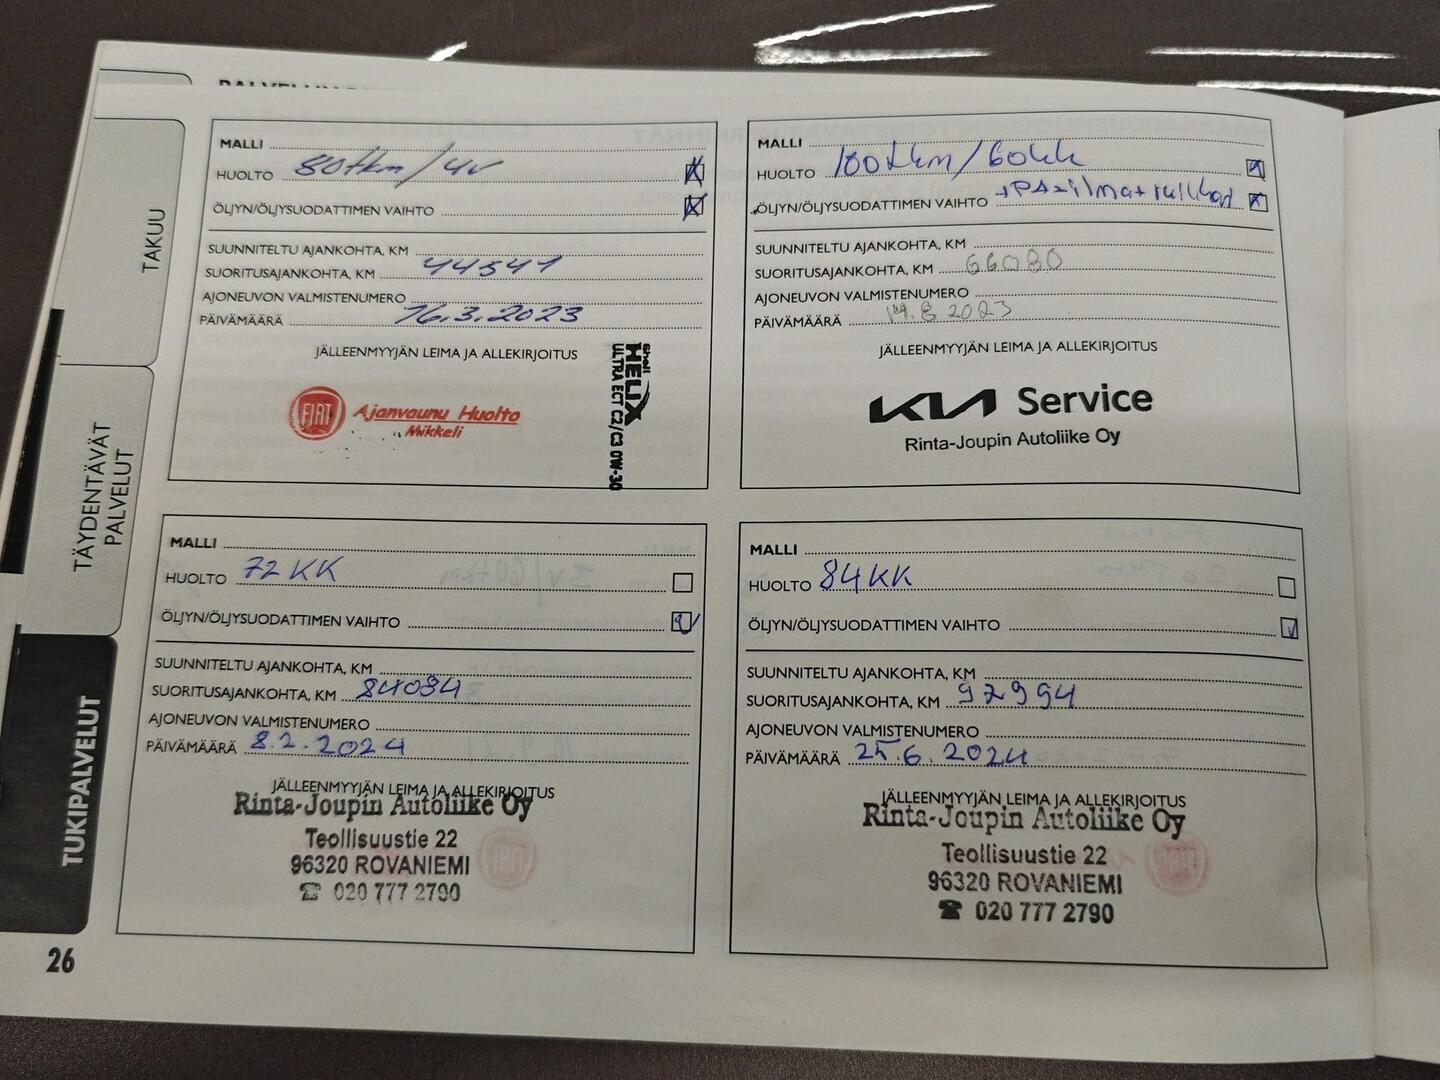 TAKUU
TÄYDENTÄVÄT
PALVELUT
TUKIPALVELUT
MALLI
HUOLTO 80tkm/4v
ÖLJYN/ÖLJYSUODATTIMEN VAIHTO
SUUNNITELTU AJANKOHTA, KM
SUORITUSAJANKOHTA, KM 44541
AJONEUVON VALMISTENUMERO
PÄIVÄMÄÄRÄ 16.3.2023
JÄLLEENMYYJÄN LEIMA JA ALLEKIRJOITUS
FIAT
Ajanvaunu Huolto
Mikkeli
Shell
HELIX
ULTRA ECT C2/C3 0W-30
MALLI
HUOLTO 100tkm/60kk
ÖLJYN/ÖLJYSUODATTIMEN VAIHTO
SUUNNITELTU AJANKOHTA, KM
SUORITUSAJANKOHTA, KM 66080
AJONEUVON VALMISTENUMERO
PÄIVÄMÄÄRÄ 14.8 2023
JÄLLEENMYYJÄN LEIMA JA ALLEKIRJOITUS
KIA Service
Rinta-Joupin Autoliike Oy
MALLI
HUOLTO 72KK
ÖLJYN/ÖLJYSUODATTIMEN VAIHTO
SUUNNITELTU AJANKOHTA, KM
SUORITUSAJANKOHTA, KM 84084
AJONEUVON VALMISTENUMERO
PÄIVÄMÄÄRÄ 8.2.2024
JÄLLEENMYYJÄN LEIMA JA ALLEKIRJOITUS
Rinta-Joupin Autoliike Oy
Teollisuustie 22
96320 ROVANIEMI
☎ 020 777 2790
MALLI
HUOLTO 84KK
ÖLJYN/ÖLJYSUODATTIMEN VAIHTO
SUUNNITELTU AJANKOHTA, KM
SUORITUSAJANKOHTA, KM 92994
AJONEUVON VALMISTENUMERO
PÄIVÄMÄÄRÄ 25.6.2024
JÄLLEENMYYJÄN LEIMA JA ALLEKIRJOITUS
Rinta-Joupin Autoliike Oy
Teollisuustie 22
96320 ROVANIEMI
☎ 020 777 2790
26